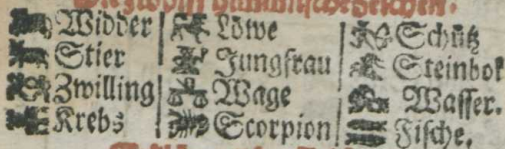 Widder
Stier
Zwilling
Krebs
Löwe
Jungfrau
Wage
Scorpion
Schütz
Steinbok
Wasser.
Fische.